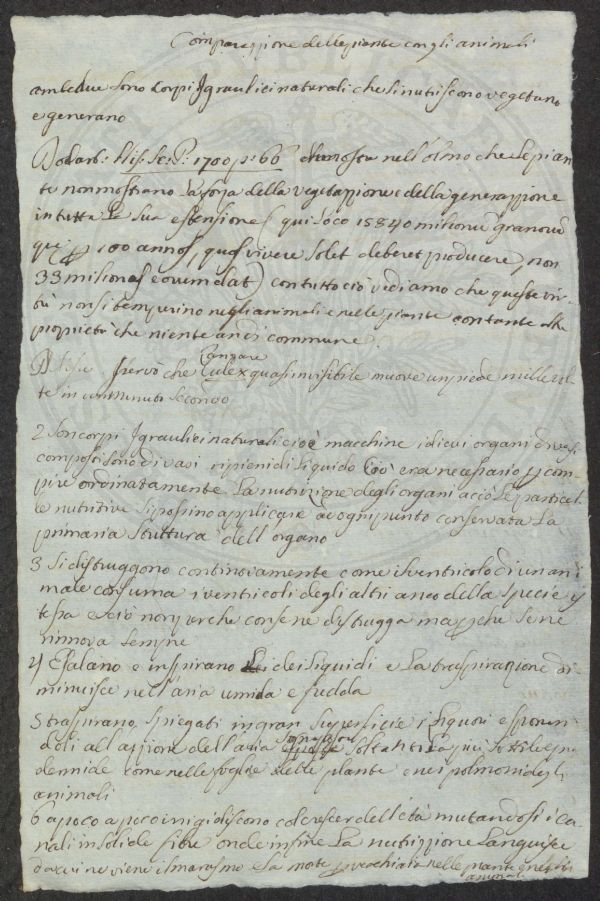 Comparazione delle piante con gli animali
ambedue sono corpi Igraulici naturali che si nutriscono vegetano
e generano
Dodart: His: Sc: P: 1700 p: 66 dimostra nell'olmo che le pian
te non mostrano la forza della vegetazzione e della generazzione
in tutta la sua estensione (qui loco 15840 milionū granorū
100 annos, quos vivere solet deberet producere, non
33 miliones dat) con tutto ciò vediamo che queste vir
tù non si temperino negli animali e nelle piante con tante altre
proprietà che niente an di commune.
che Culex quasi invisibile muove un piede mille vol
te in un minuto secondo
2 Son corpi Igraulici naturali cioè macchine i di cui organi diversi
composti sono di vasi ripieni di liquido Ciò era necessario p com
pire ordinatamente la nutrizione degli organi acciò le particel
le nutritive si possino applicare ad ogni punto conservata la
primaria struttura dell'organo
3 Si distruggono continovamente come il ventricolo di un ani
male consuma i ventricoli degli altri anco della specie s
tessa e ciò non perche non se ne distrugga ma pche se ne
rinnova sempre
4) Esalano e inspirano dei liquidi e la traspirazione di
minuisce nell'aria umida e fredda
5 traspirano, spiegati in gran superficie i liquori esponen
doli all'azzione dell'aria soltanto la più sottile epi
dermide come nelle foglie delle piante e nei polmoni degli
animali
6 a poco a poco inrigidiscono col crescer dell'età mutandosi i ca
nali in solide fibre onde infine la nutrizzione languisce
da cui ne viene il marasmo e la morte p vecchiaia nelle piante e negli
animali